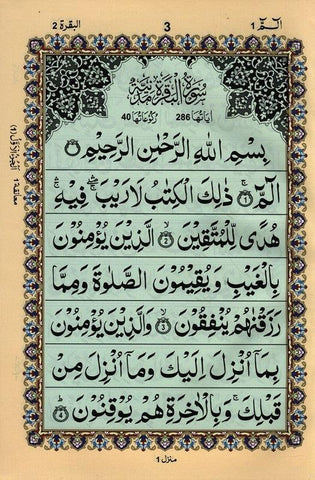 البقرة 2
3
الٓمّٓ 1
سُوْرَةُ الْبَقَرَةِ مَدَنِيَّةٌ
اٰيَاتُهَا 286 رُكُوْعَاتُهَا 40
بِسْمِ اللهِ الرَّحْمٰنِ الرَّحِيْمِ
الٓمّٓ ۚ﴿1﴾ ذٰلِكَ الْكِتٰبُ لَا رَيْبَ ۛۚ فِيْهِ ۛۚ
هُدًى لِّلْمُتَّقِيْنَ ﴿2﴾ الَّذِيْنَ يُؤْمِنُوْنَ
بِالْغَيْبِ وَ يُقِيْمُوْنَ الصَّلٰوةَ وَ مِمَّا
رَزَقْنٰهُمْ يُنْفِقُوْنَ ﴿3﴾ وَالَّذِيْنَ يُؤْمِنُوْنَ
بِمَاۤ اُنْزِلَ اِلَيْكَ وَ مَاۤ اُنْزِلَ مِنْ
قَبْلِكَ ۚ وَ بِالْاٰخِرَةِ هُمْ يُوْقِنُوْنَ ﴿4﴾
منزل 1
معانقة 1